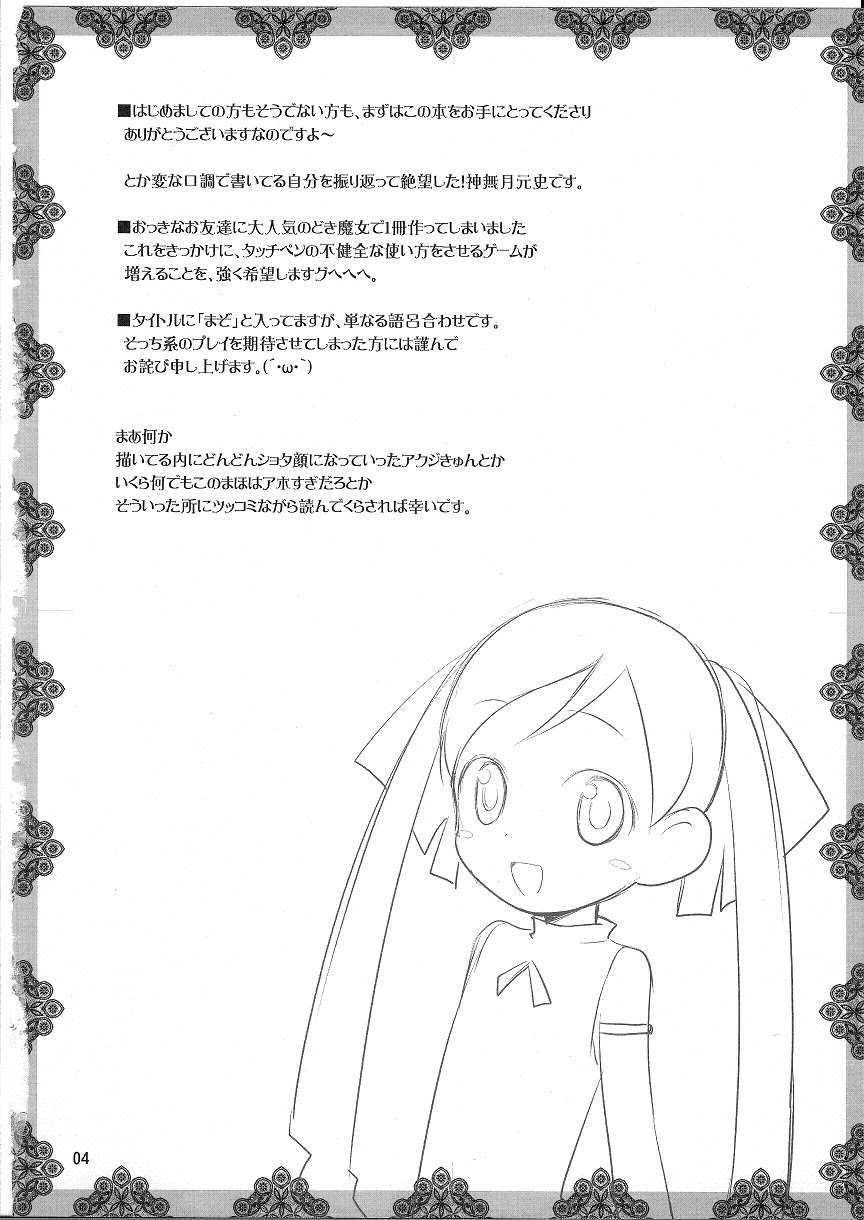 ■はじめましての方もそうでない方も、まずはこの本をお手にとってくださり
ありがとうございますなのですよ～
とか変な口調で書いてる自分を振り返って絶望した!神無月元史です。
■おっきなお友達に大人気のどき魔女で1冊作ってしまいました
これをきっかけに、タッチペンの不健全な使い方をさせるゲームが
増えることを、強く希望しますグヘヘヘ。
■タイトルに「まぞ」と入ってますが、単なる語呂合わせです。
そっち系のプレイを期待させてしまった方には謹んで
お詫び申し上げます。(´･ω･`)
まあ何か
描いてる内にどんどんショタ顔になっていったアクジきゅんとか
いくら何でもこのまほはアホすぎだろとか
そういった所にツッコミながら読んでくらされば幸いです。
04